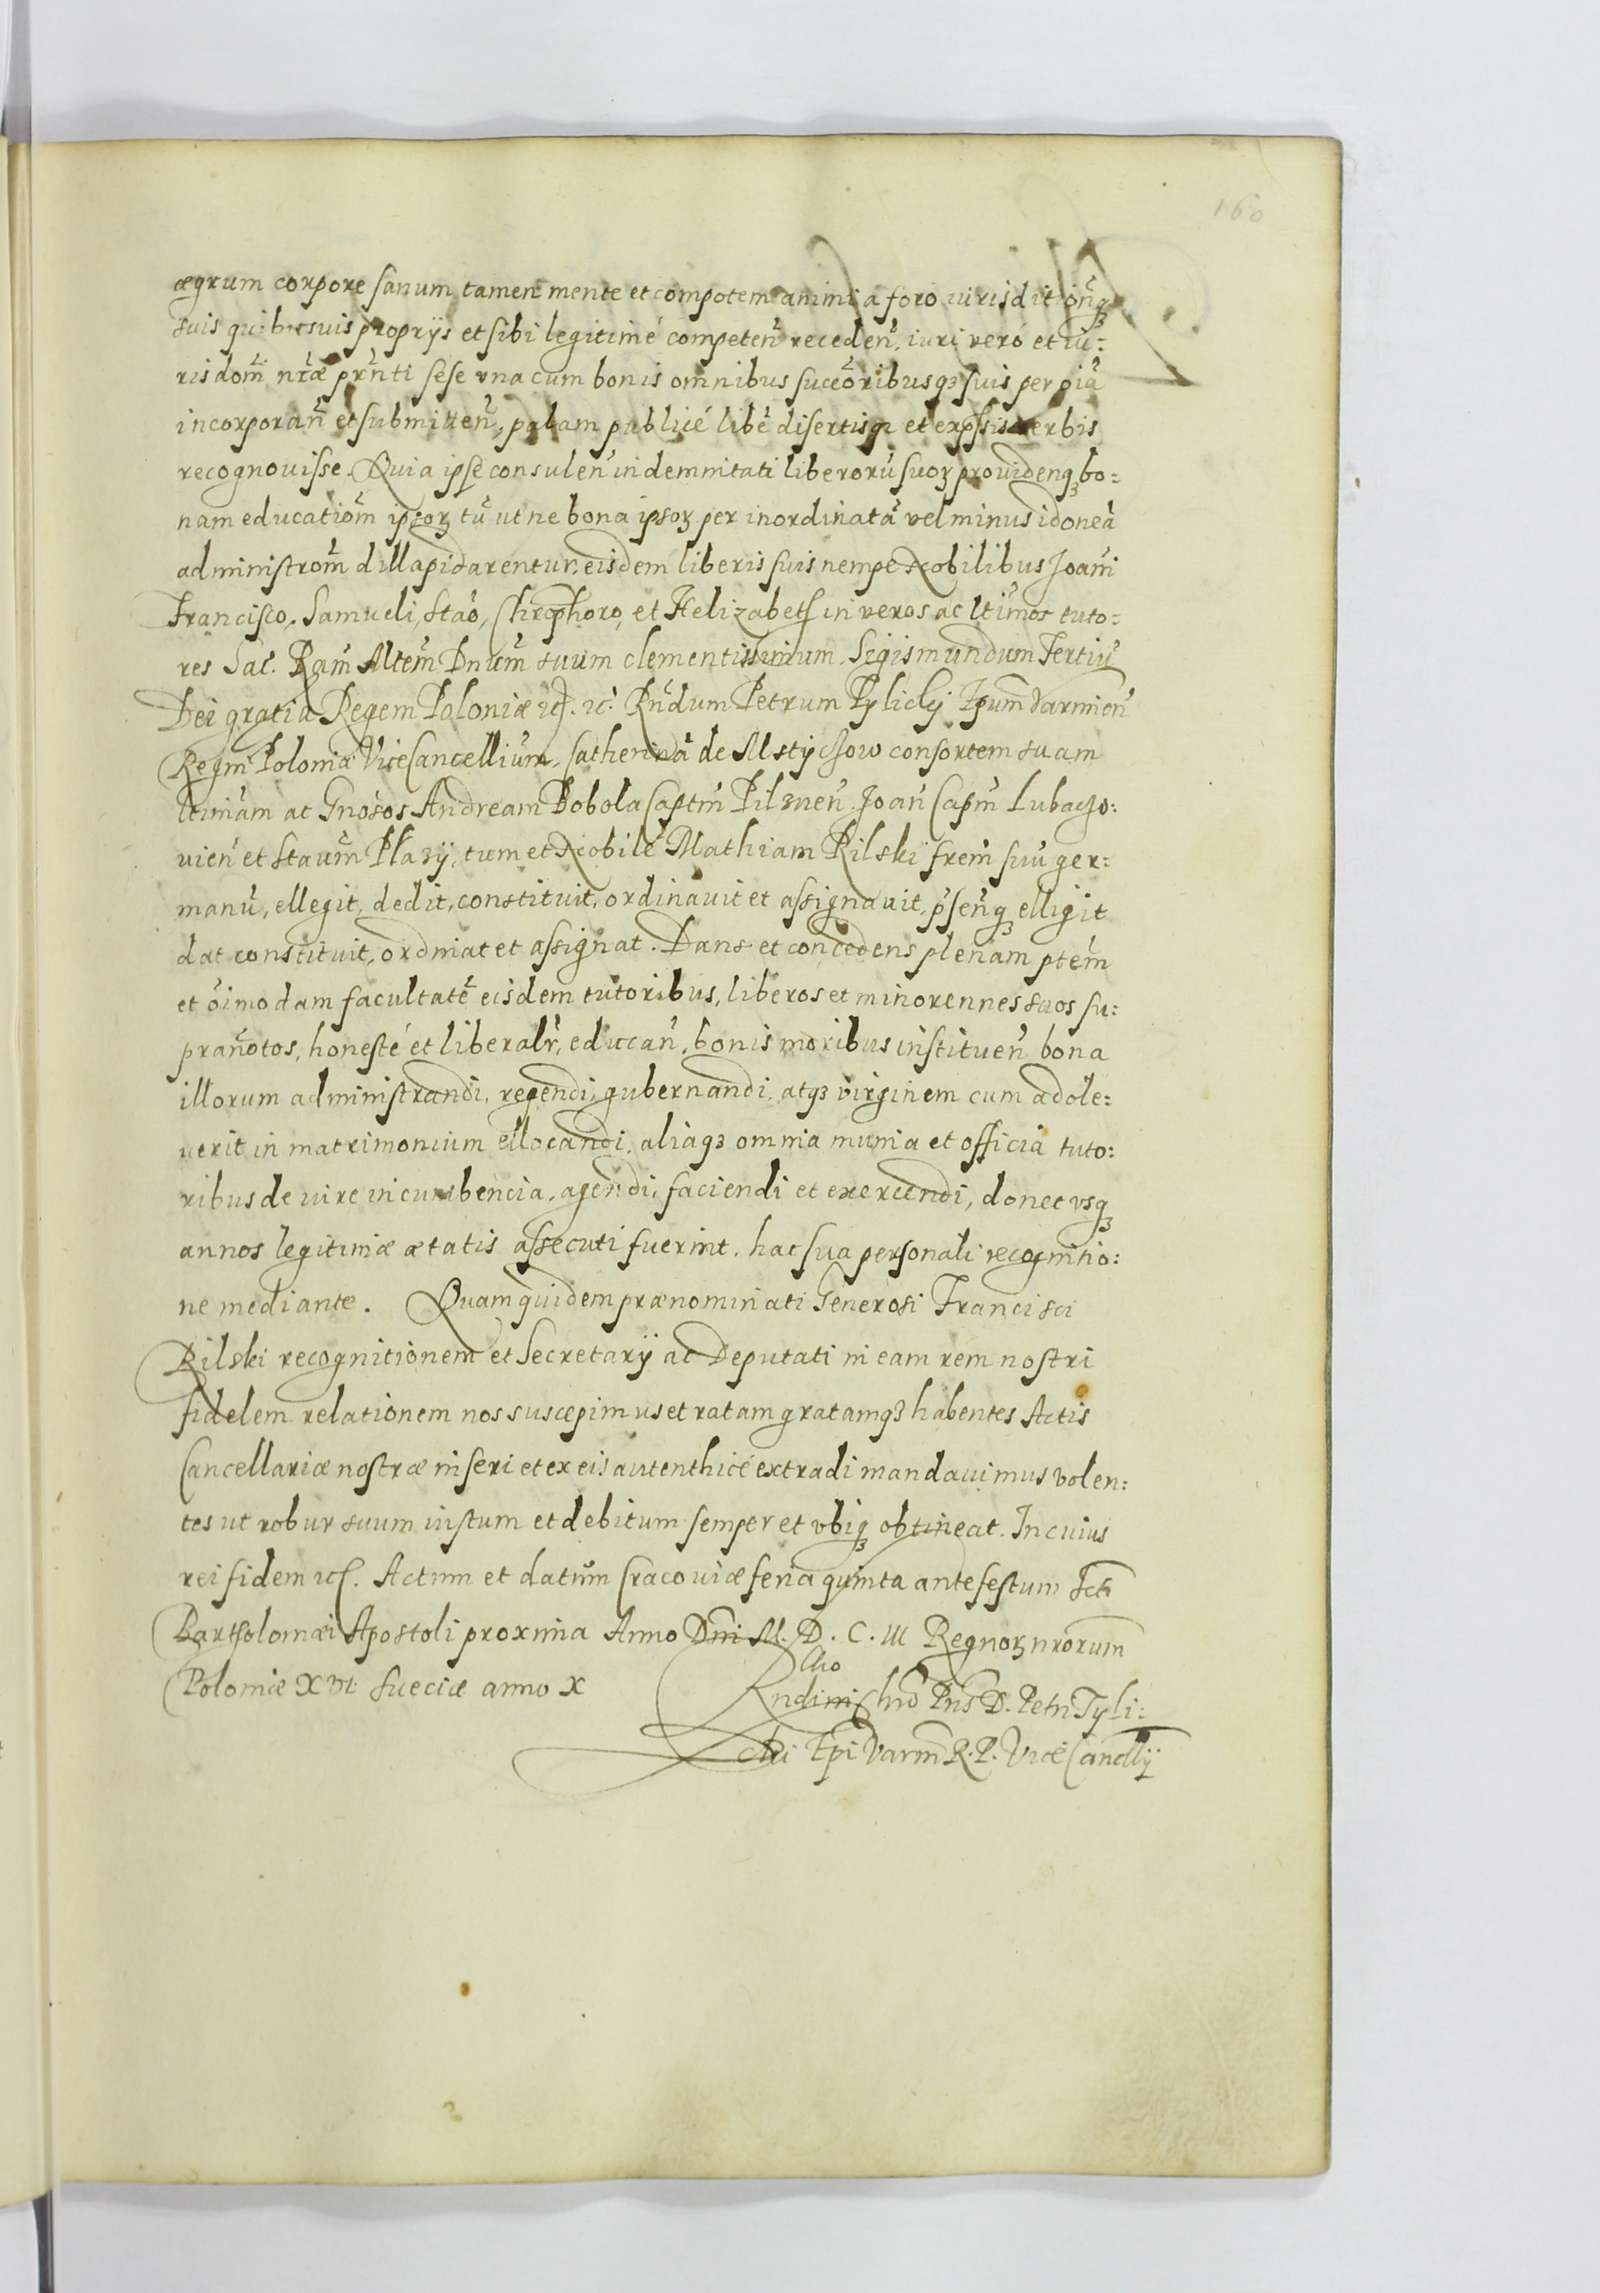 160
ægrum corpore sanum tamen mente et compotem animi a foro iurisditõnq3
suis quibusuis proprijs et sibi legitimé competeñ recedeñ, iuri veró et iu:
risdom̃ nr̃æ prñti sese vna cum bonis omnibus succõribusq3 suis per oiã
incorporañ et submitteñ, palam publicé libẽ disertisq3 et exp̃ssis verbis
recognouisse. Quia ipse consuleñ indemnitati liberorũ suoʒ prouidenq3 bo:
nam educatiom̃ ipsoʒ tũ ut ne bona ipsoʒ per inordinatã vel minus idoneã
administrom̃ dillapidarentur, eisdem liberis suis nempe Nobilibus Joañi
Francisco, Samueli, Stãõ, Chrõphoro, et Helizabeth in veros ac ltĩmos tuto:
res Sac. Ram̃ Mltem̃ Dnũm suum clementissimum Sigismundum Tertiũ
Dei gratia Regem Poloniæ etc. etc. Rñdum Petrum Tylicky Epum̃ Varmieñ
Regni Poloniæ ViceCancellium̃, Catherinã de Mstyczow consortem suam
ltimam̃ ac Gnõsos Andream Bobola Captm̃ Pilzneñ Joañ Capm̃ Lubaczo:
uieñ et Staum̃ Płazÿ, tum et Nobilẽ Mathiam Rilski frem̃ suũ ger:
manũ, ellegit, dedit, constituit, ordinauit et assignauit, p̃senq3 elligit
dat constituit, ordinat et assignat. Dans et concedens plenam ptem̃
et õimodam facultatẽ eisdem tutoribus, liberos et minorennes suos su:
prañotos, honesté et liberalr̃, educañ, bonis moribus instituen̄ bona
illorum administrandi, regendi, gubernandi, atq3 virginem cum adole:
uerit in matrimonium ellocandi, aliaq3 omnia munia et officia tuto:
ribus de iure incumbencia, agendi, faciendi et exercendi, donec vsq3
annos legitimæ ætatis assecuti fuerint, hac sua personali recognitio:
ne mediante. Quam quidem prænominati Generosi Francisci
Rilski recognitionem et Secretarÿ ac Deputati in eam rem nostri
fidelem relationem nos suscepimus et ratam gratamq3 habentes Actis
Cancellariæ nostræ inseri et ex eis autenthicé extradi mandauimus volen:
tes ut robur suum iustum et debitum semper et vbiq3 obtineat. In cuius
rei fidem etc. Actum et datum Cracouiæ feria quinta ante festum Scti
Bartholomæi Apostoli proxima Anno Dñi M. D. C. III Regnoʒ nrorum̃
Poloniæ XVI. Sueciæ anno X
Rndiñi Chrõ Pris D. Petri Tyli:
cki Epi Varm̃ R. P. ViceCancllÿ